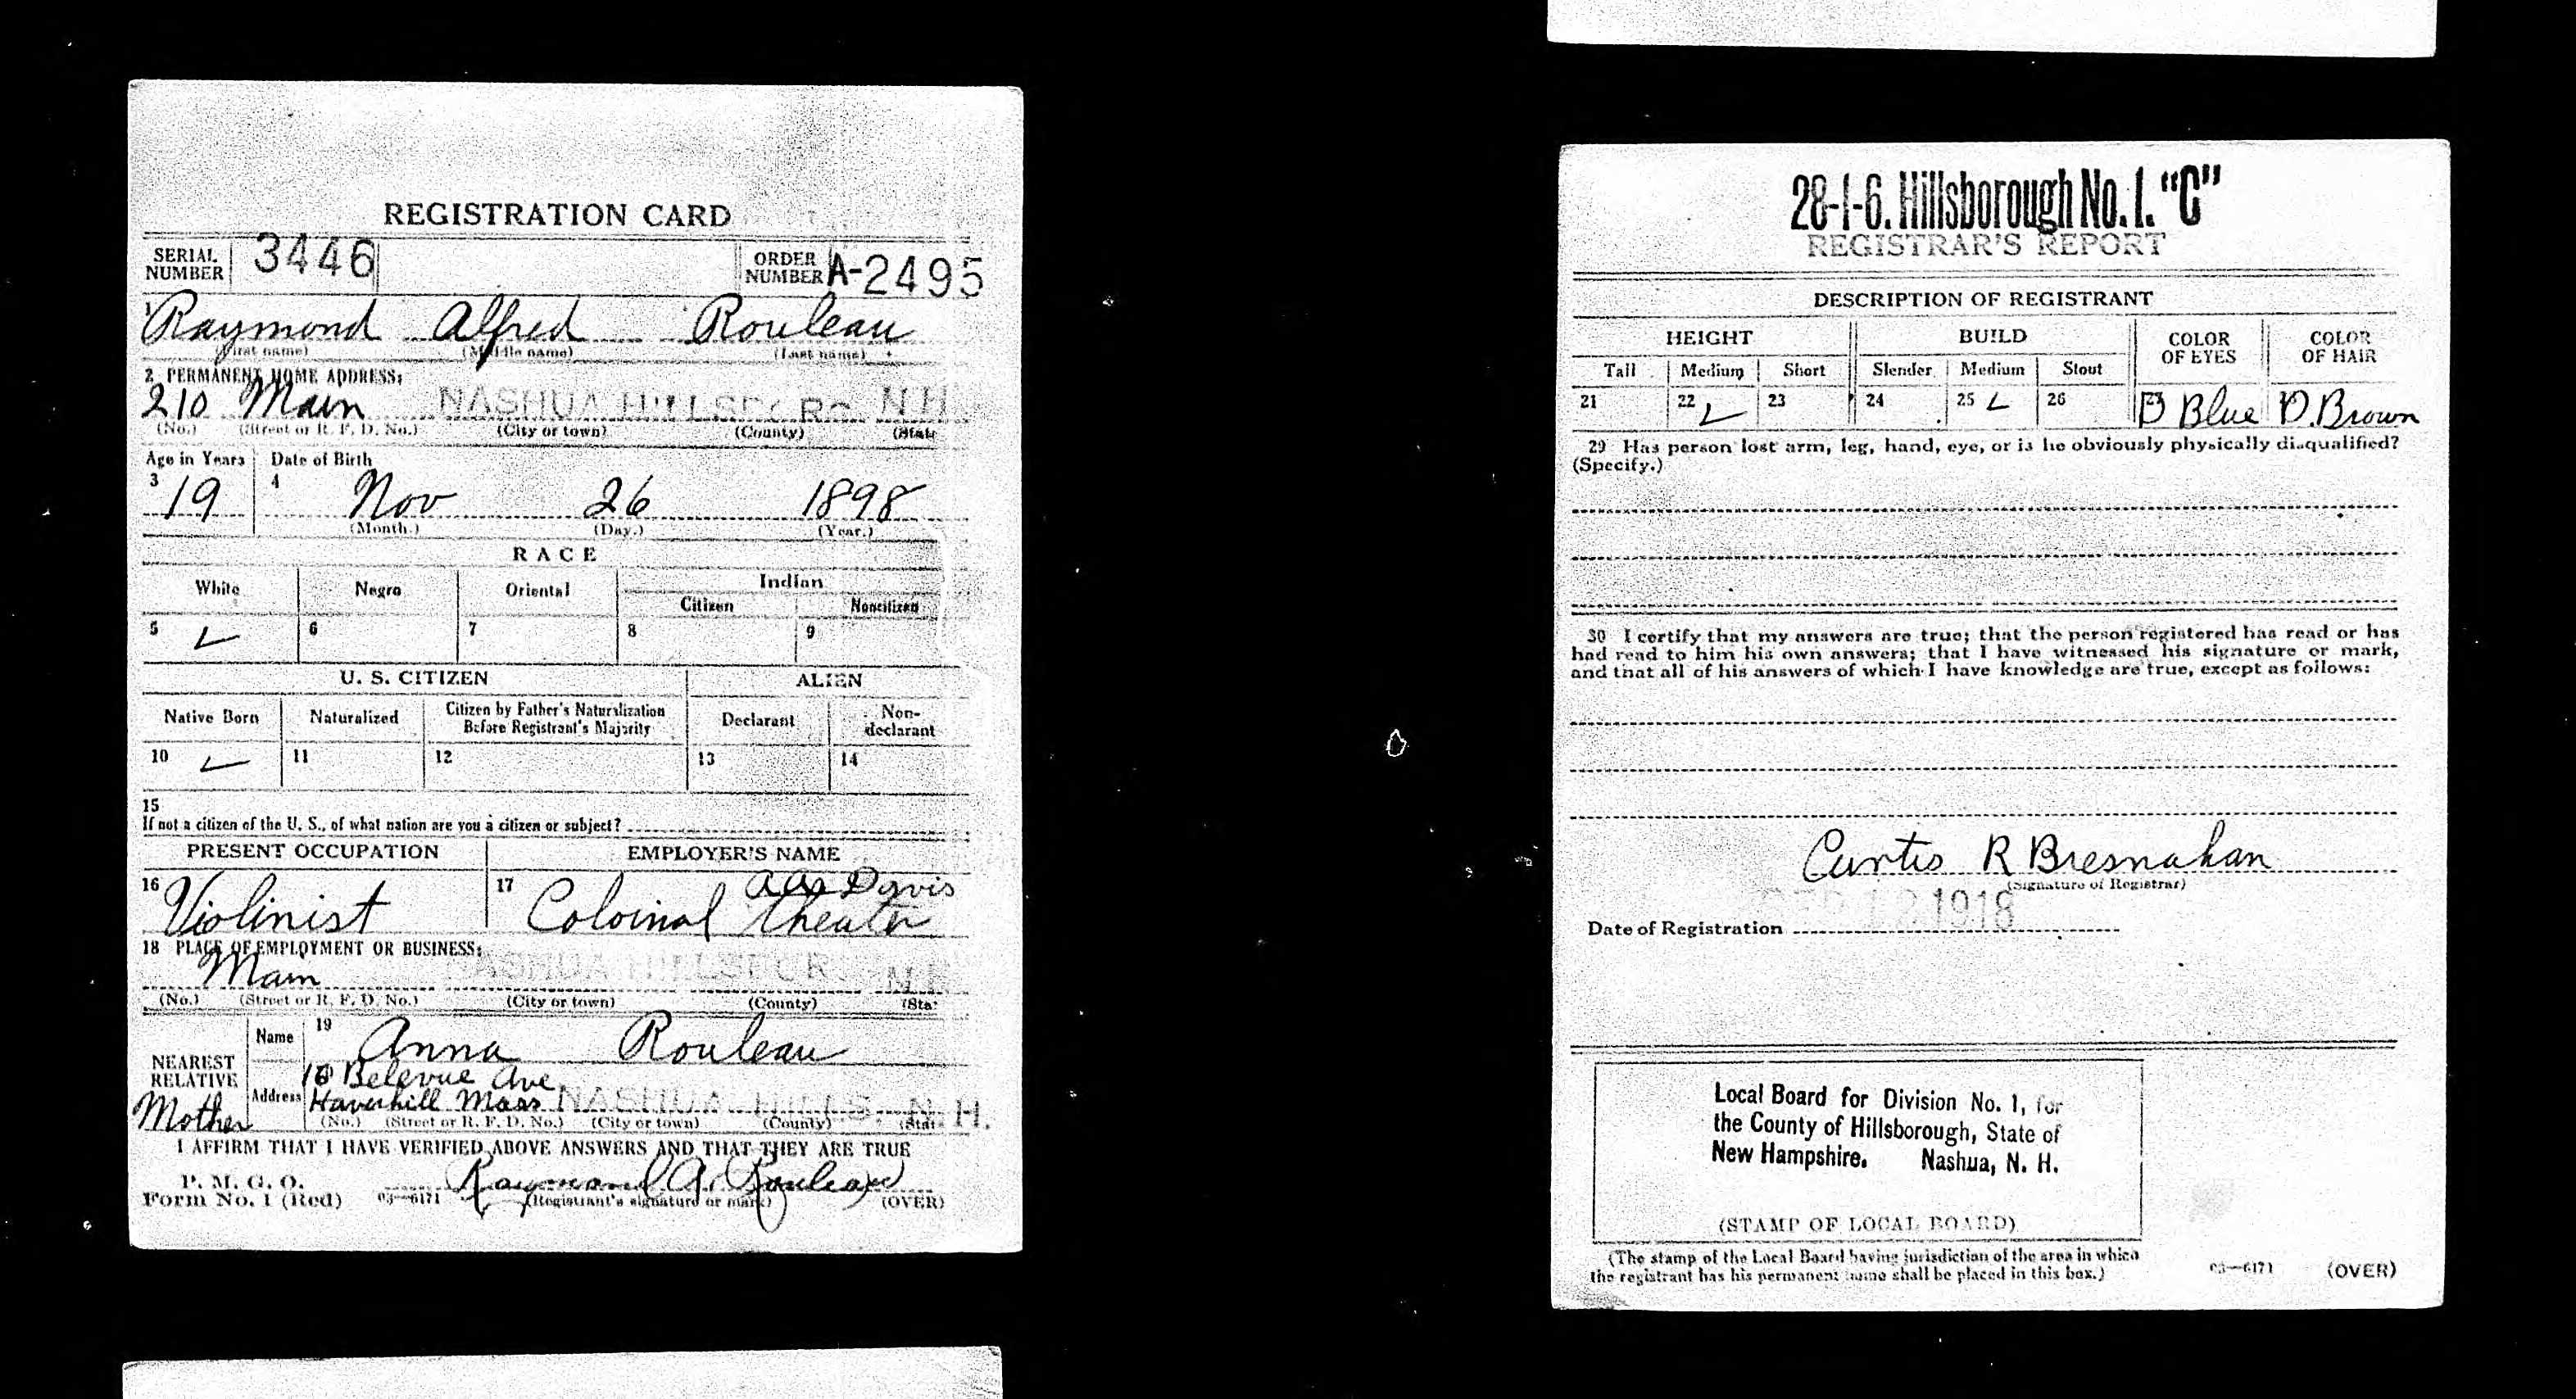 REGISTRATION CARD
SERIAL NUMBER 3446 ORDER NUMBER A-2495
1 Raymond Alfred Rouleau
(First name) (Middle name) (Last name)
2 PERMANENT HOME ADDRESS:
210 Main NASHUA HILLSBORO N H
(No.) (Street or R. F. D. No.) (City or town) (County) (State
Age in Years Date of Birth
3 19 4 Nov 26 1898
(Month.) (Day.) (Year.)
RACE
White Negro Oriental Indian
Citizen Noncitizen
5 ✓ 6 7 8 9
U. S. CITIZEN ALIEN
Native Born Naturalized Citizen by Father's Naturalization Before Registrant's Majority Declarant Non-declarant
10 ✓ 11 12 13 14
15
If not a citizen of the U. S., of what nation are you a citizen or subject?
PRESENT OCCUPATION EMPLOYER'S NAME
16 Violinist 17 Davis
Coloinal Theater
18 PLACE OF EMPLOYMENT OR BUSINESS:
Main
(No.) (Street or R. F. D. No.) (City or town) (County) (Sta
NEAREST RELATIVE Name 19 Anna Rouleau
Mother Address Belevue Ave.
Haverhill Mass NASHUA HILLS. N. H.
(No.) (Street or R. F. D. No.) (City or town) (County) (Stat
I AFFIRM THAT I HAVE VERIFIED ABOVE ANSWERS AND THAT THEY ARE TRUE
P. M. G. O.
Form No. 1 (Red) 03—6171 Raymond A. Rouleau
(Registrant's signature or mark) (OVER)
28-1-6. Hillsborough No. 1. "C"
REGISTRAR'S REPORT
DESCRIPTION OF REGISTRANT
HEIGHT BUILD COLOR OF EYES COLOR OF HAIR
Tall Medium Short Slender Medium Stout
21 22 ✓ 23 24 25 ✓ 26 27 D Blue D. Brown
29 Has person lost arm, leg, hand, eye, or is he obviously physically disqualified?
(Specify.)
30 I certify that my answers are true; that the person registered has read or has
had read to him his own answers; that I have witnessed his signature or mark,
and that all of his answers of which I have knowledge are true, except as follows:
Curtis R Bresnahan
(Signature of Registrar)
Date of Registration SEP 12 1918
Local Board for Division No. 1, for
the County of Hillsborough, State of
New Hampshire. Nashua, N. H.
(STAMP OF LOCAL BOARD)
(The stamp of the Local Board having jurisdiction of the area in which
the registrant has his permanent home shall be placed in this box.)
03—6171 (OVER)